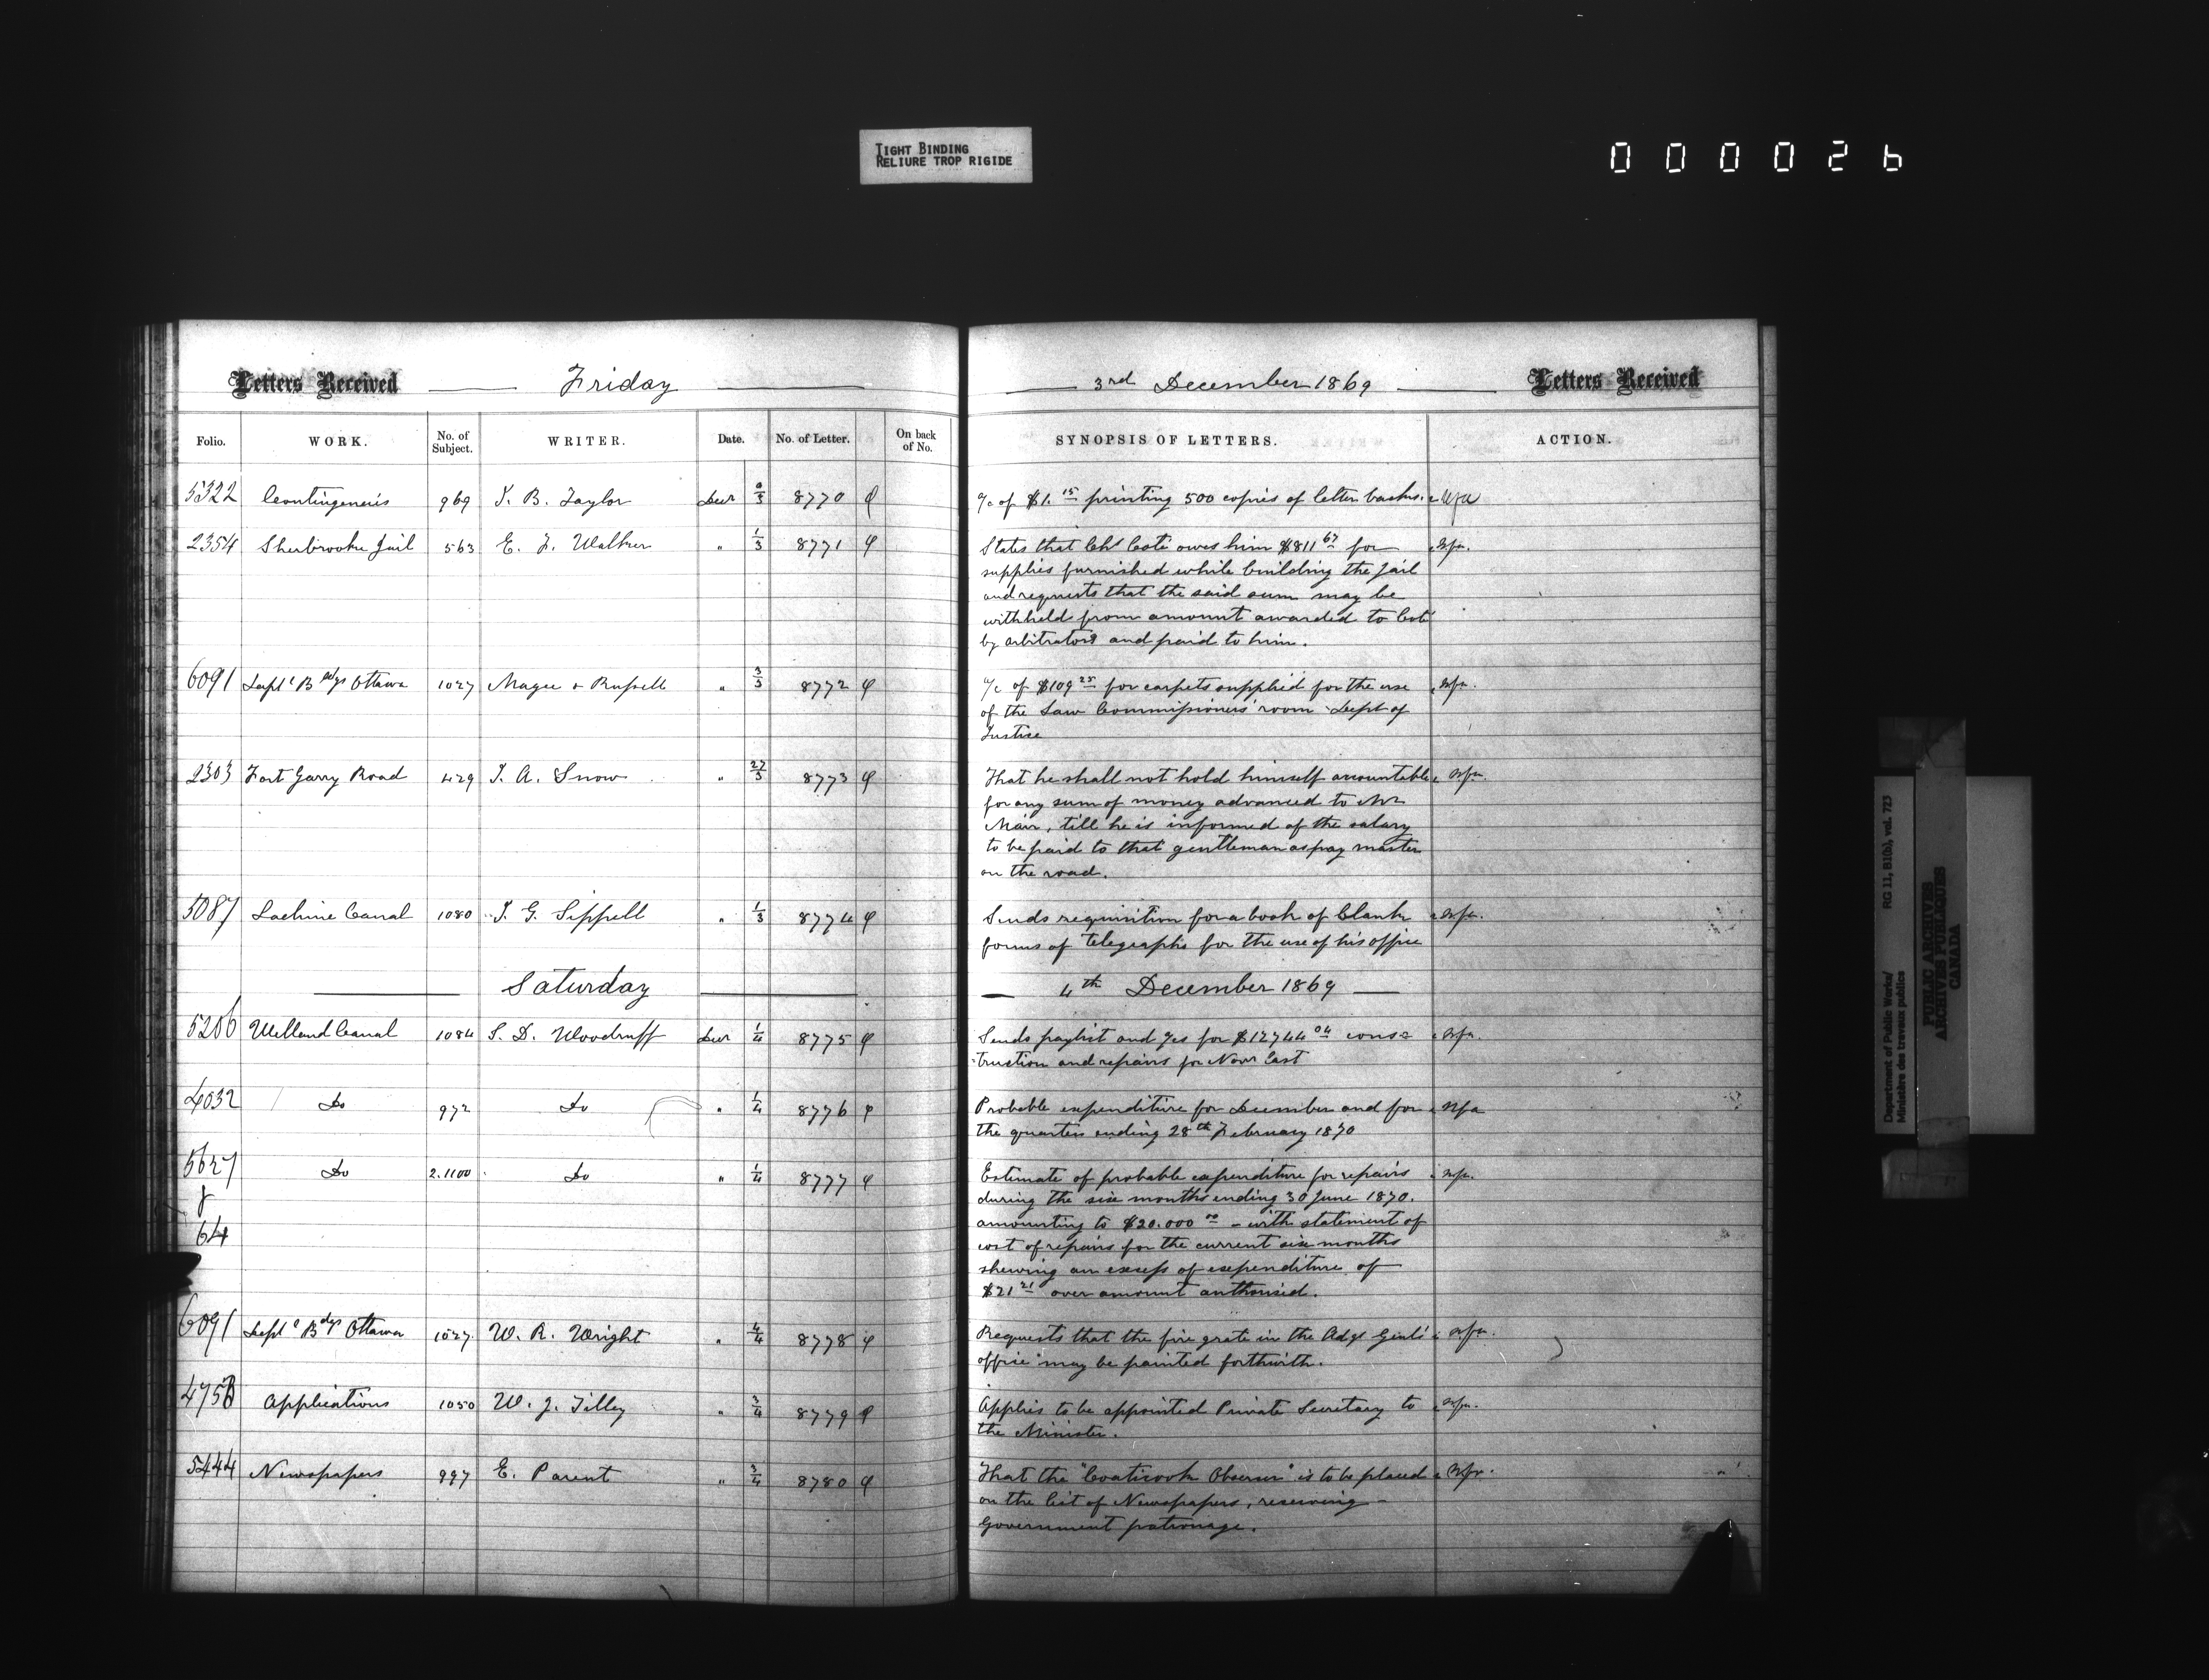 TIGHT BINDING
RELIURE TROP RIGIDE
000026
Letters Received Friday 3rd December 1869 Letters Received
Folio. WORK. No. of Subject. WRITER. Date. No. of Letter. On back of No. SYNOPSIS OF LETTERS. ACTION.
5322 Contingencies 969 I. B. Taylor Decr 8770 a/c of $1.15 printing 500 copies of letter backs.
2354 Sherbrooke Jail 563 E. F. Walker " 1/3 8771 States that Chs Coté owes him $811 67 for
supplies furnished while building the Jail
and requests that the said sum may be
withheld from amount awarded to Coté
by arbitrators and paid to him.
6091 Deptl Bldgs Ottawa 1027 Magee & Russell " 3/3 8772 a/c of $109 25 for carpets supplied for the use
of the Law Commissioners' room Dept of
Justice
2303 Fort Garry Road 429 J. A. Snow " 27/3 8773 That he shall not hold himself accountable
for any sum of money advanced to Mr
Mair, till he is informed of the salary
to be paid to that gentleman as pay master
on the road.
5087 Lachine Canal 1080 J. G. Sippell " 1/3 8774 Sends requisition for a book of blank
forms of telegraphs for the use of his office
Saturday 4th December 1869
5206 Welland Canal 1084 S. D. Woodruff Decr 1/4 8775 Sends paylist and a/cs for $12744 04 cons=
=truction and repairs for Novr last
4032 Do 972 Do " 1/4 8776 Probable expenditure for December and for
the quarter ending 28th February 1870
5627 Do 2.1100 Do " 1/4 8777 Estimate of probable expenditure for repairs
during the six months ending 30 June 1870.
amounting to $20.000 00 - with statement of
64 cost of repairs for the current six months
shewing an excess of expenditure of
$21 21 over amount authorised.
6091 Deptl Bdgs Ottawa 1027 W. R. Wright " 4/4 8778 Requests that the fire grate in the Adjt Genl's
office may be painted forthwith.
4758 Applications 1050 W. J. Tilley " 3/4 8779 Applies to be appointed Private Secretary to
the Minister.
5444 Newspapers 997 E. Parent " 3/4 8780 That the "Coaticook Observer" is to be placed
on the list of Newspapers, receiving
Government patronage.
Department of Public Works/
Ministère des travaux publics
RG 11, B1(b), vol. 723
PUBLIC ARCHIVES
ARCHIVES PUBLIQUES
CANADA